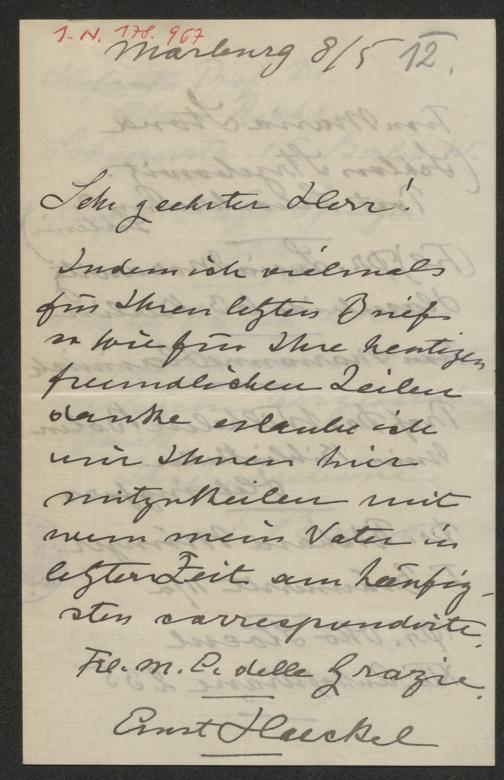 J. N. 178.967
Marburg 8/5 12.
Sehr geehrter Herr!
Indem ich vielmals
für Ihren letzten Brief
so wie für Ihre heutigen
freundlichen Zeilen
danke erlaube ich
mir Ihnen hier
mitzutheilen mit
wem mein Vater in
letzter Zeit am häufig-
sten correspondirte.
Frl. M. E. delle Grazie.
Ernst Haeckel